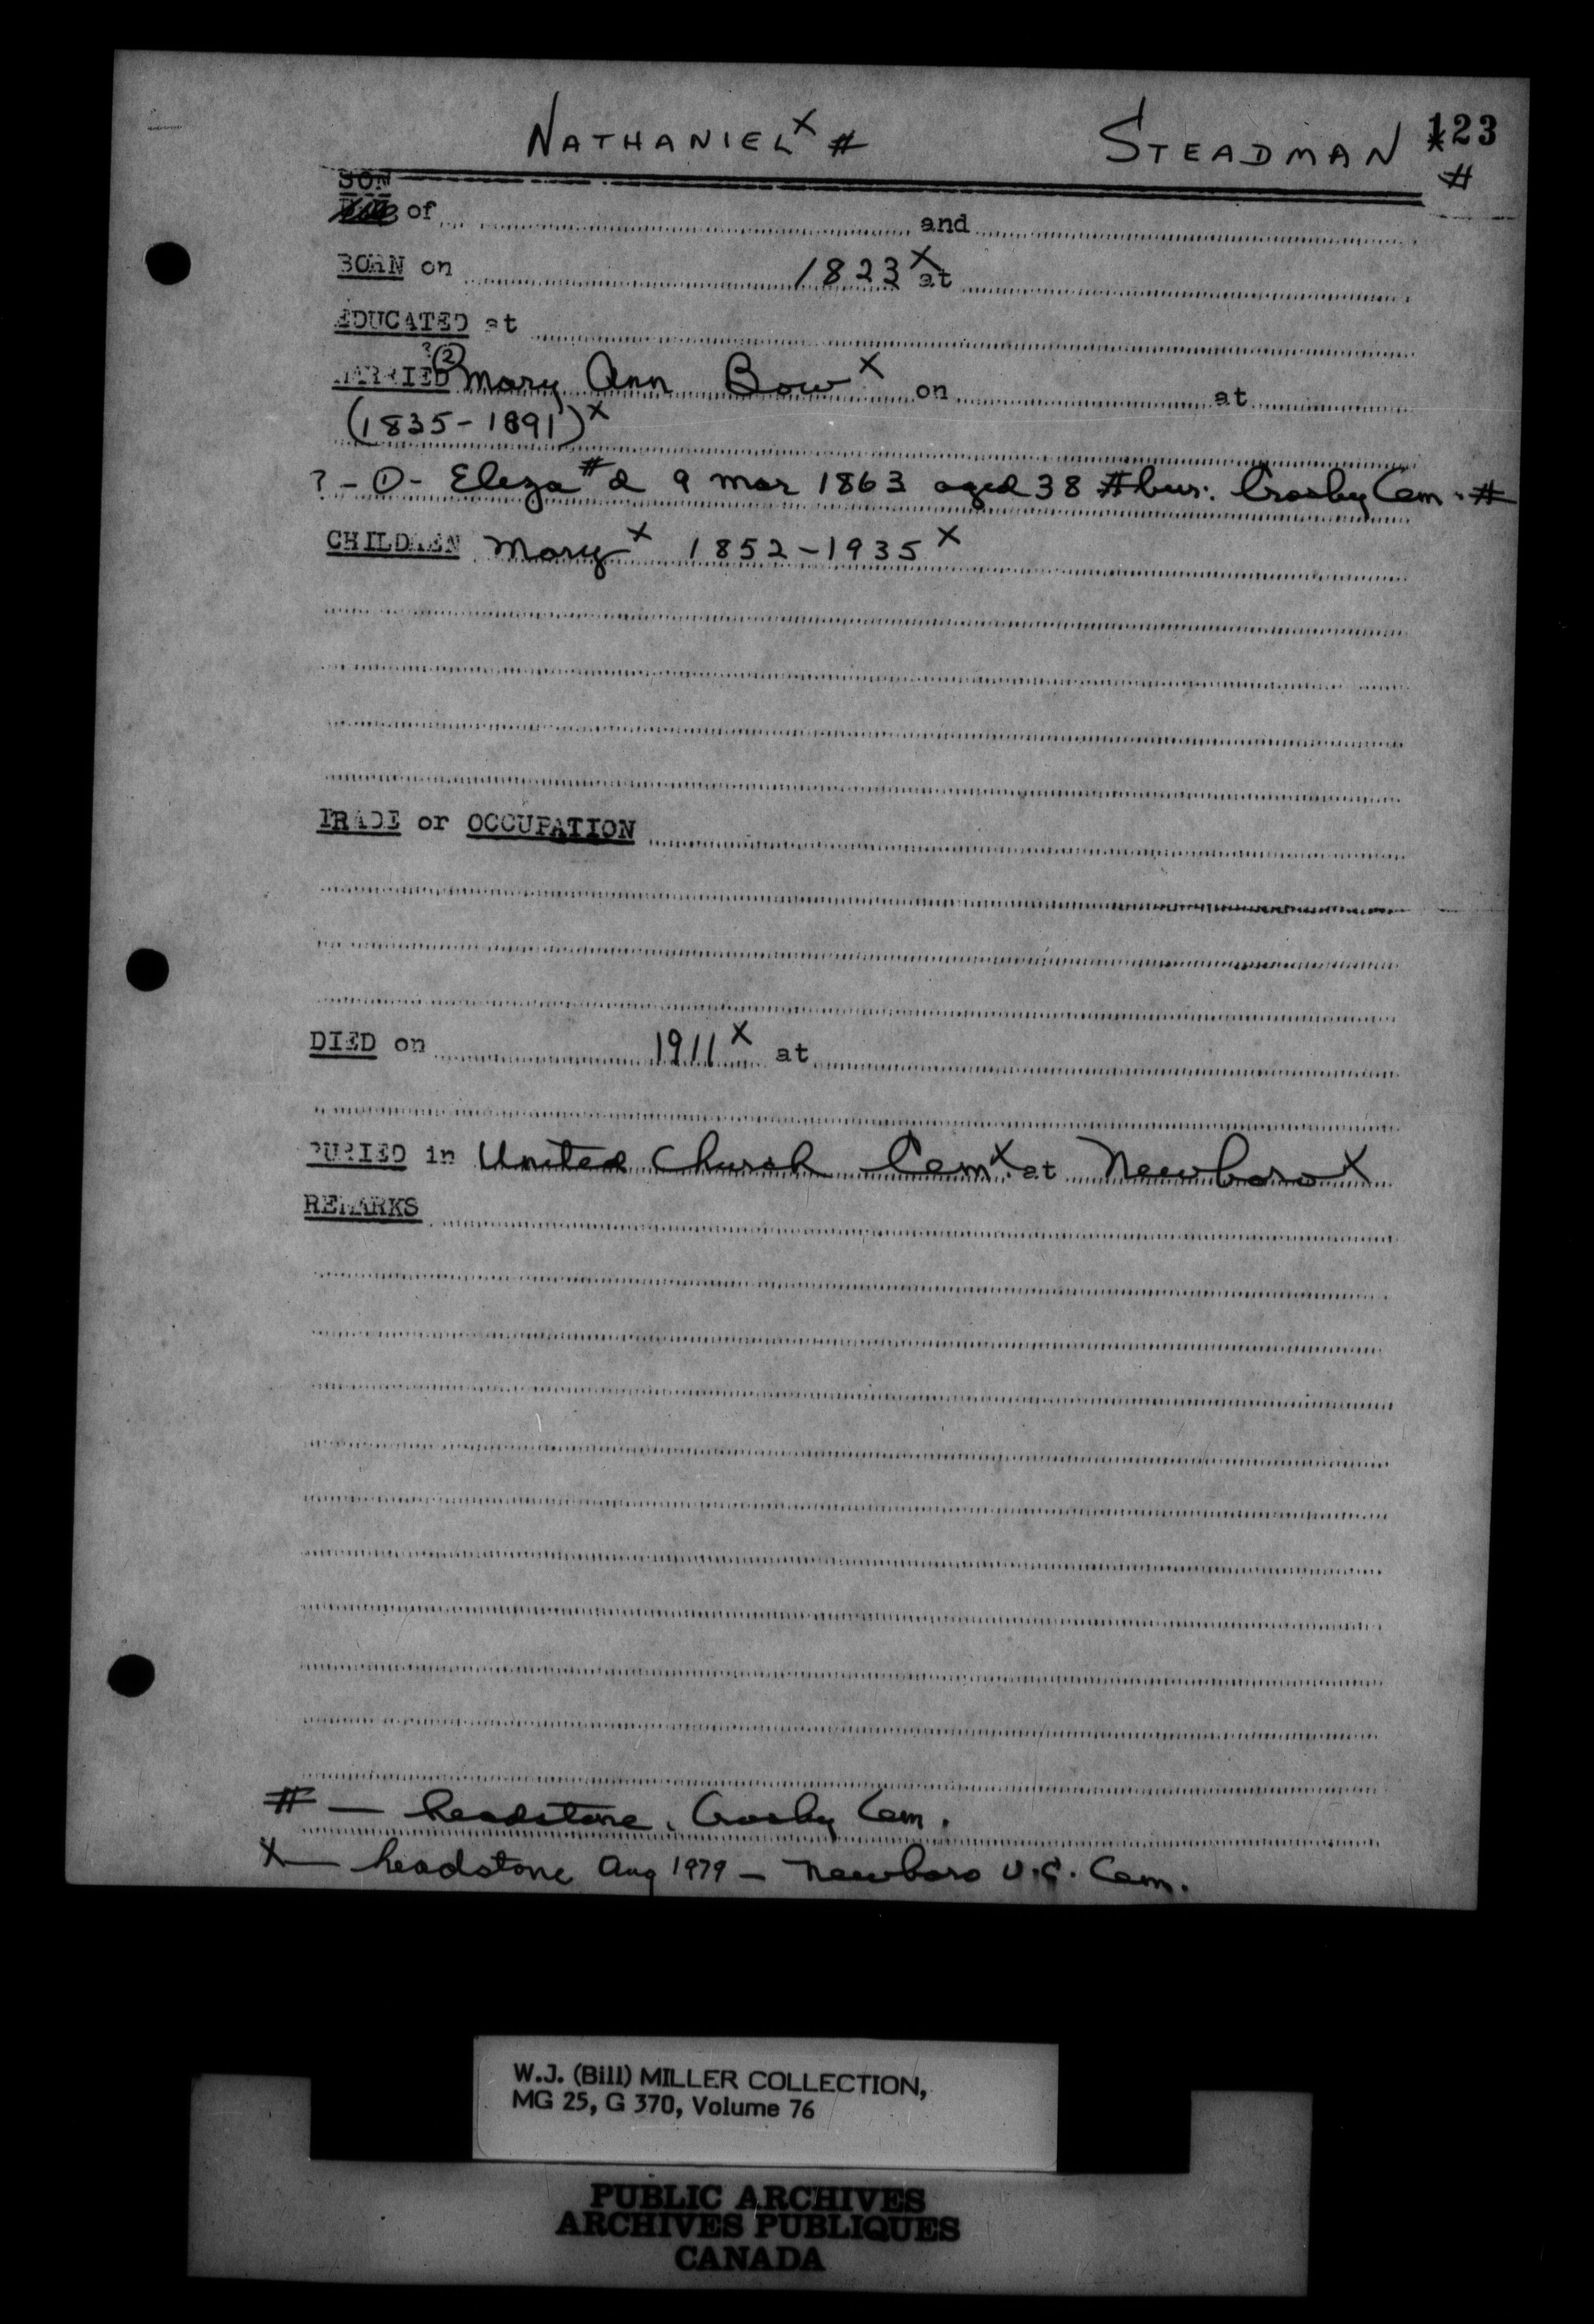 NATHANIEL x # STEADMAN x 123
#
SON
of and
BORN on 1823 x at
EDUCATED at
? ②
MARRIED Mary Ann Bow x on at
(1835-1891) x
? - ① - Eliza # d 9 Mar 1863 aged 38 # bur. Crosby Cem. #
CHILDREN Mary x 1852-1935 x
TRADE or OCCUPATION
DIED on 1911 x at
BURIED in United Church Cem x. at Newboro x
REMARKS
# — headstone, Crosby Cem.
x — headstone Aug 1979 — Newboro U.C. Cem.
W.J. (Bill) MILLER COLLECTION,
MG 25, G 370, Volume 76
PUBLIC ARCHIVES
ARCHIVES PUBLIQUES
CANADA